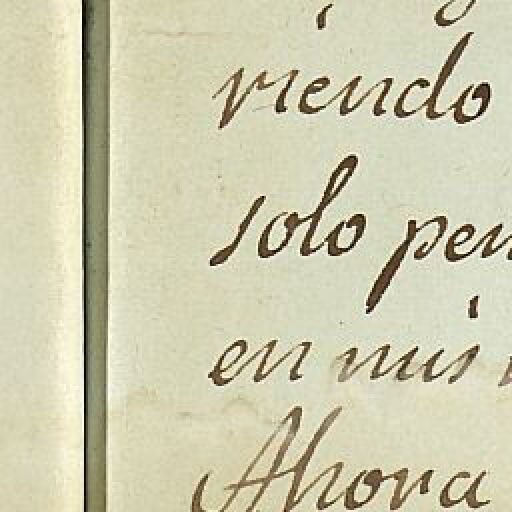 riendo
solo pen
en mis
Ahora